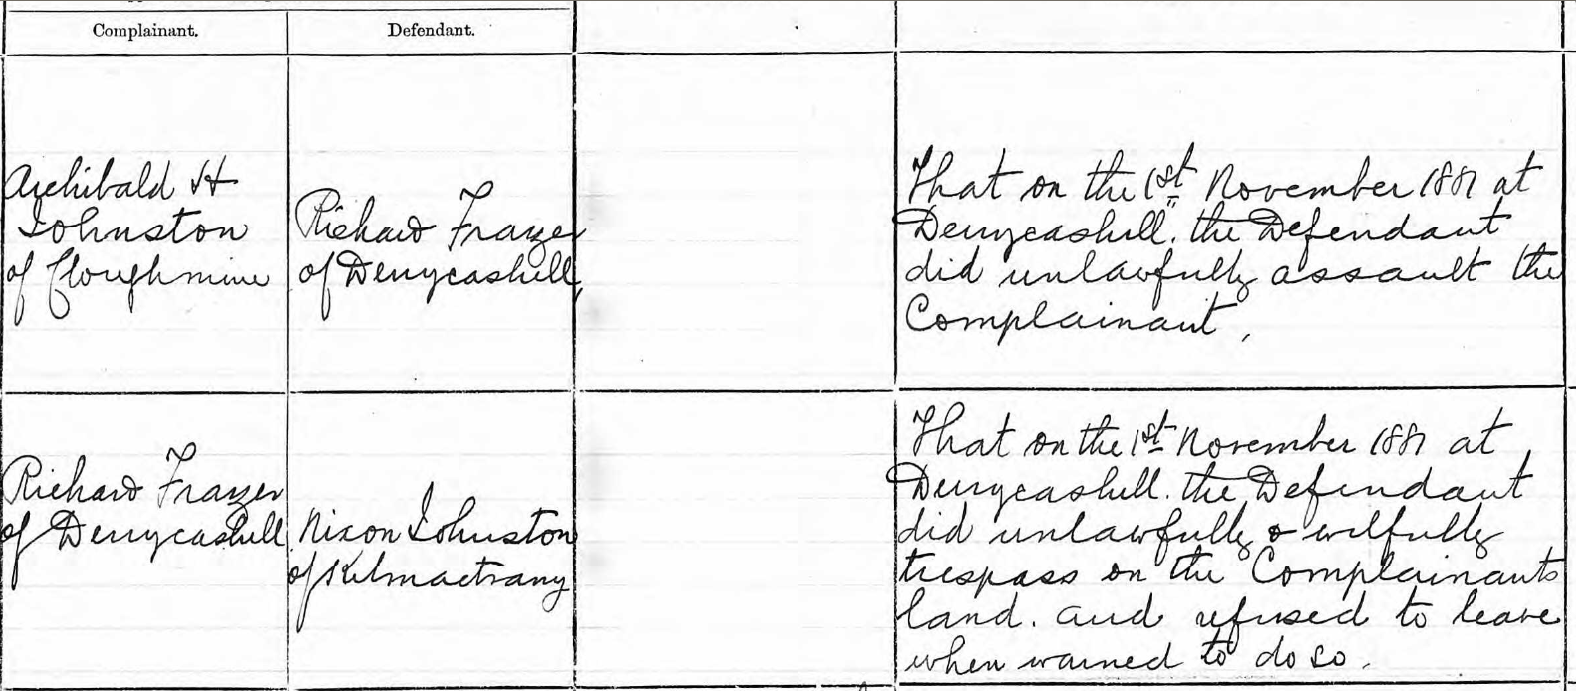 Complainant.
Defendant.
Archibald H
Johnston
of Cloughmine
Richard Frazer
of Derrycashell,
That on the 1st November 1881 at
Derrycashell. the Defendant
did unlawfully assault the
Complainant,
Richard Frazer
of Derrycashell
Nixon Johnston
of Kilmactrany
That on the 1st November 1881 at
Derrycashell. the Defendant
did unlawfully & wilfully
trespass on the Complainants
land. and refused to leave
when warned to do so.